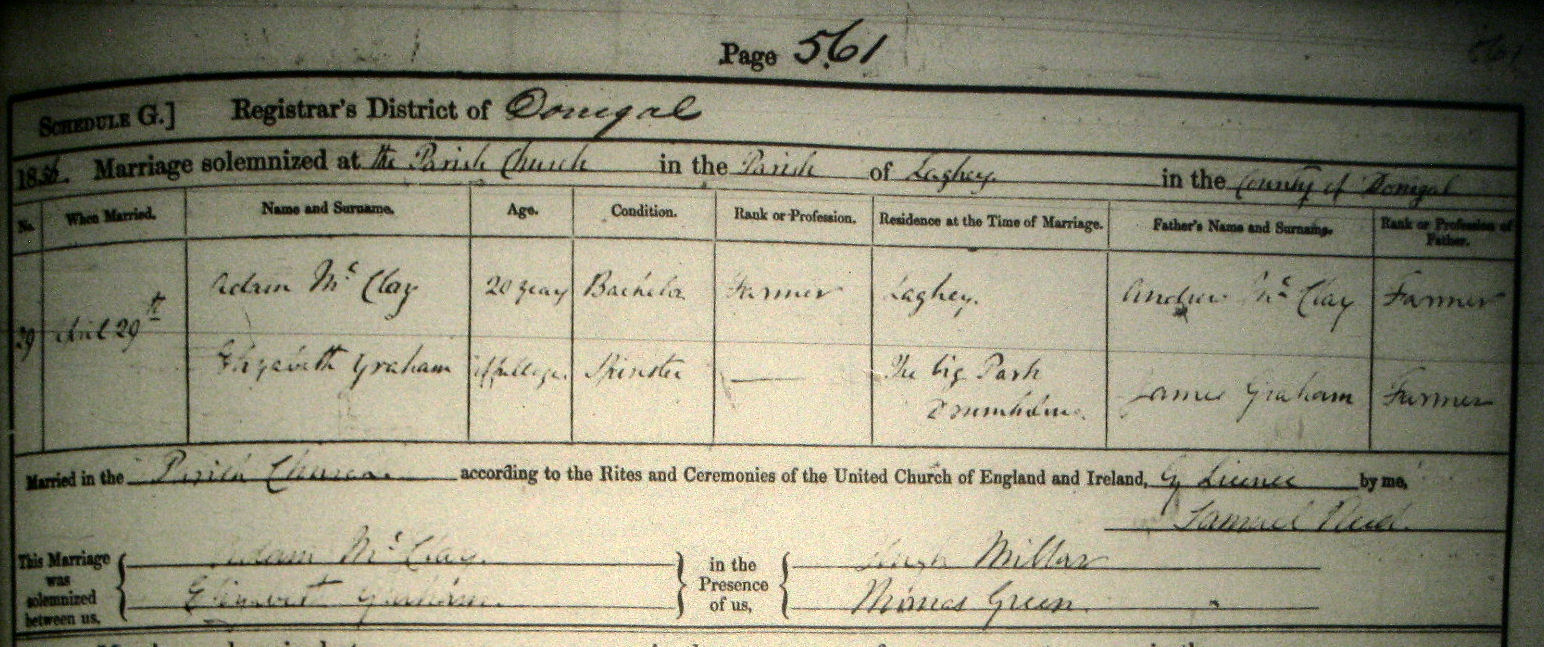 Page 561
SCHEDULE G.] Registrar's District of Donegal
1856. Marriage solemnized at the Parish Church in the Parish of Laghey. in the County of Donegal
No. When Married. Name and Surname. Age. Condition. Rank or Profession. Residence at the Time of Marriage. Father's Name and Surname. Rank or Profession of Father.
Adam Mc Clay 20 years Bachelor Farmer Laghey. Andrew Mc Clay Farmer
39 April 29th
Elizabeth Graham of full age. Spinster — The big Park James Graham Farmer
Drumholm.
Married in the Parish Church. according to the Rites and Ceremonies of the United Church of England and Ireland, By Licence by me,
Samuel Reid.
This Marriage was solemnized between us, Adam Mc Clay. in the Presence of us, Hugh Millar
Elizabeth Graham. Thomas Green.